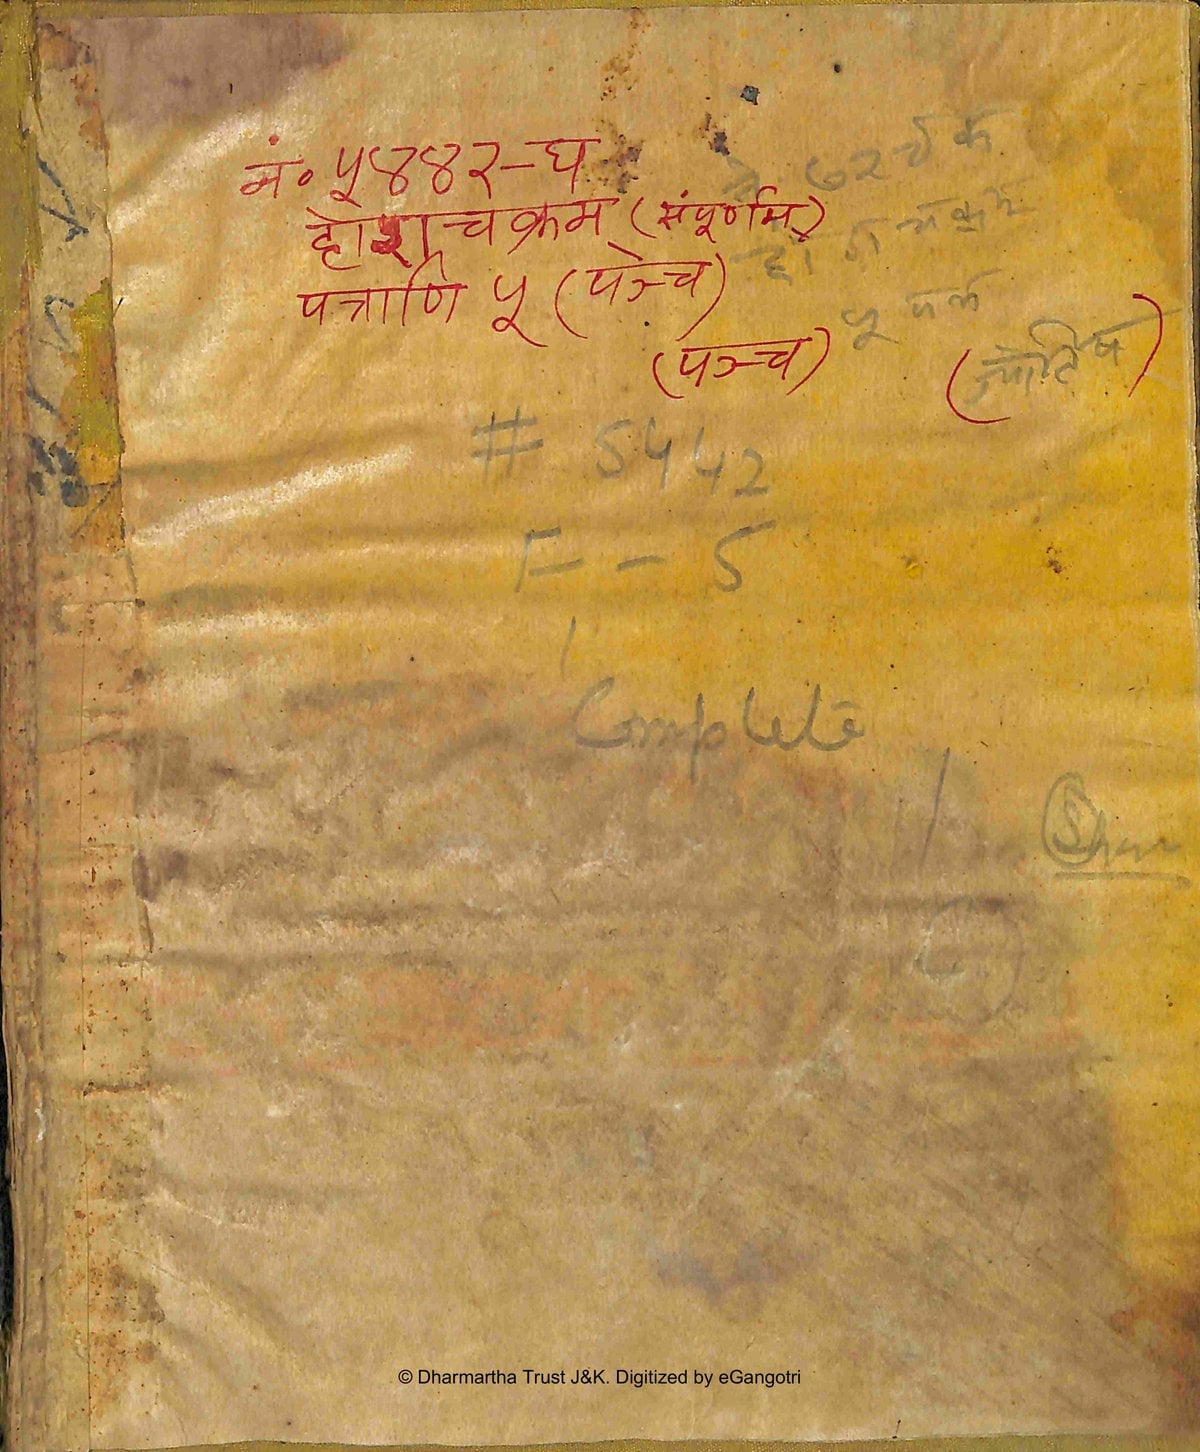 नं० ५४४२-घ
होराचक्रम (संपूर्णम्)
पत्राणि ५ (पञ्च)
(पञ्च)
(ज्योतिष)
# 5442
F - 5
Complete
© Dharmartha Trust J&K. Digitized by eGangotri